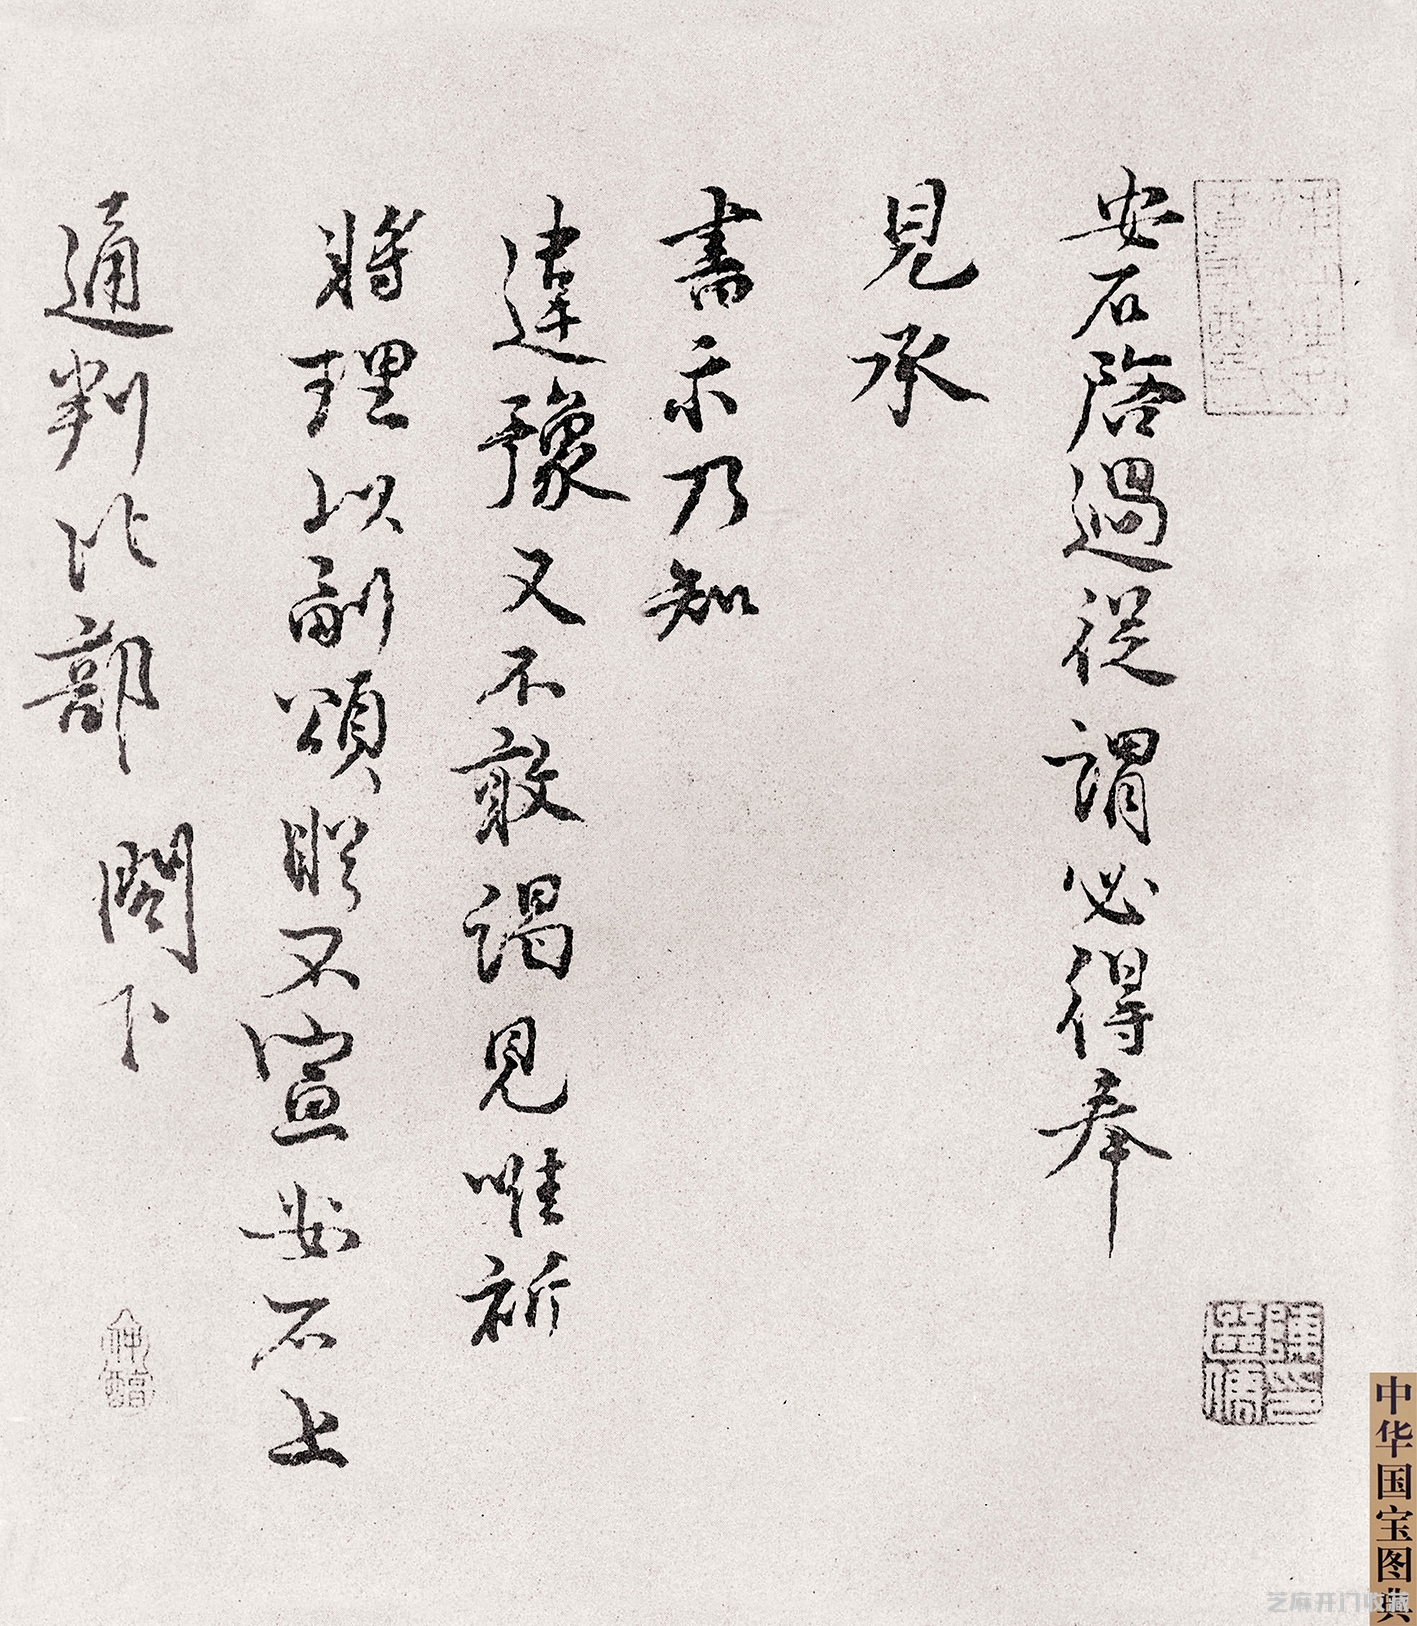 安石啓過從謂必得奉
見承
書示乃知
違豫又不敢謁見唯祈
將理以副頌眤不宣安石上
通判比部 閤下
仲醇
中华国宝图典
芝麻开门收藏